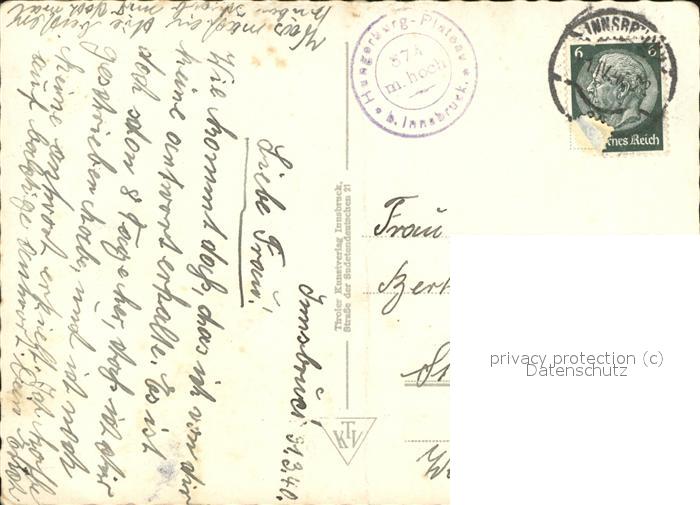 Innsbruck, 31.3.40.
Liebe Frau!
Wie kommt daß, das ich von dir
keine antwort erhalte. Es ist
doch schon 8 Tage her, daß ich dir
geschrieben habe und ich noch
keine antwort erhielt. Ich hoffe
auf baldige antwort. Dein
Was machen die beiden
Hungerburg-Plateau
874
m. hoch
b. Innsbruck
INNSBRUCK
6 6
Reich
Tiroler Kunstverlag Innsbruck,
Straße der Sudetendeutschen 21
KTV
Frau
privacy protection (c)
Datenschutz